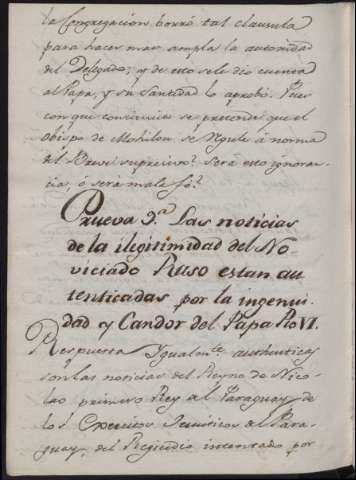 la Congregacion borró tal clausula
para hacer mas ampla la autoridad
del Delegado, y de esto se le dio cuenta
al Papa, y su Santidad lo aprobó. Pues
con que conciencia se pretende que el
Obispo de Mohilou se regule á norma
del Breve supresivo? Será esto ignoran
cia, ó será mala fé?
Prueva 9.ª Las noticias
de la ilegitimidad del No
viciado Ruso estan au
tenticadas por la ingenui
dad y Candor del Papa Pio VI.
Respuesta Igualm.te authenticas
son las noticias del Reyno de Nico
lao primero Rey al Paraguay, de
los Exercitos Jesuiticos al Para
guay, del Regicidio intentado por